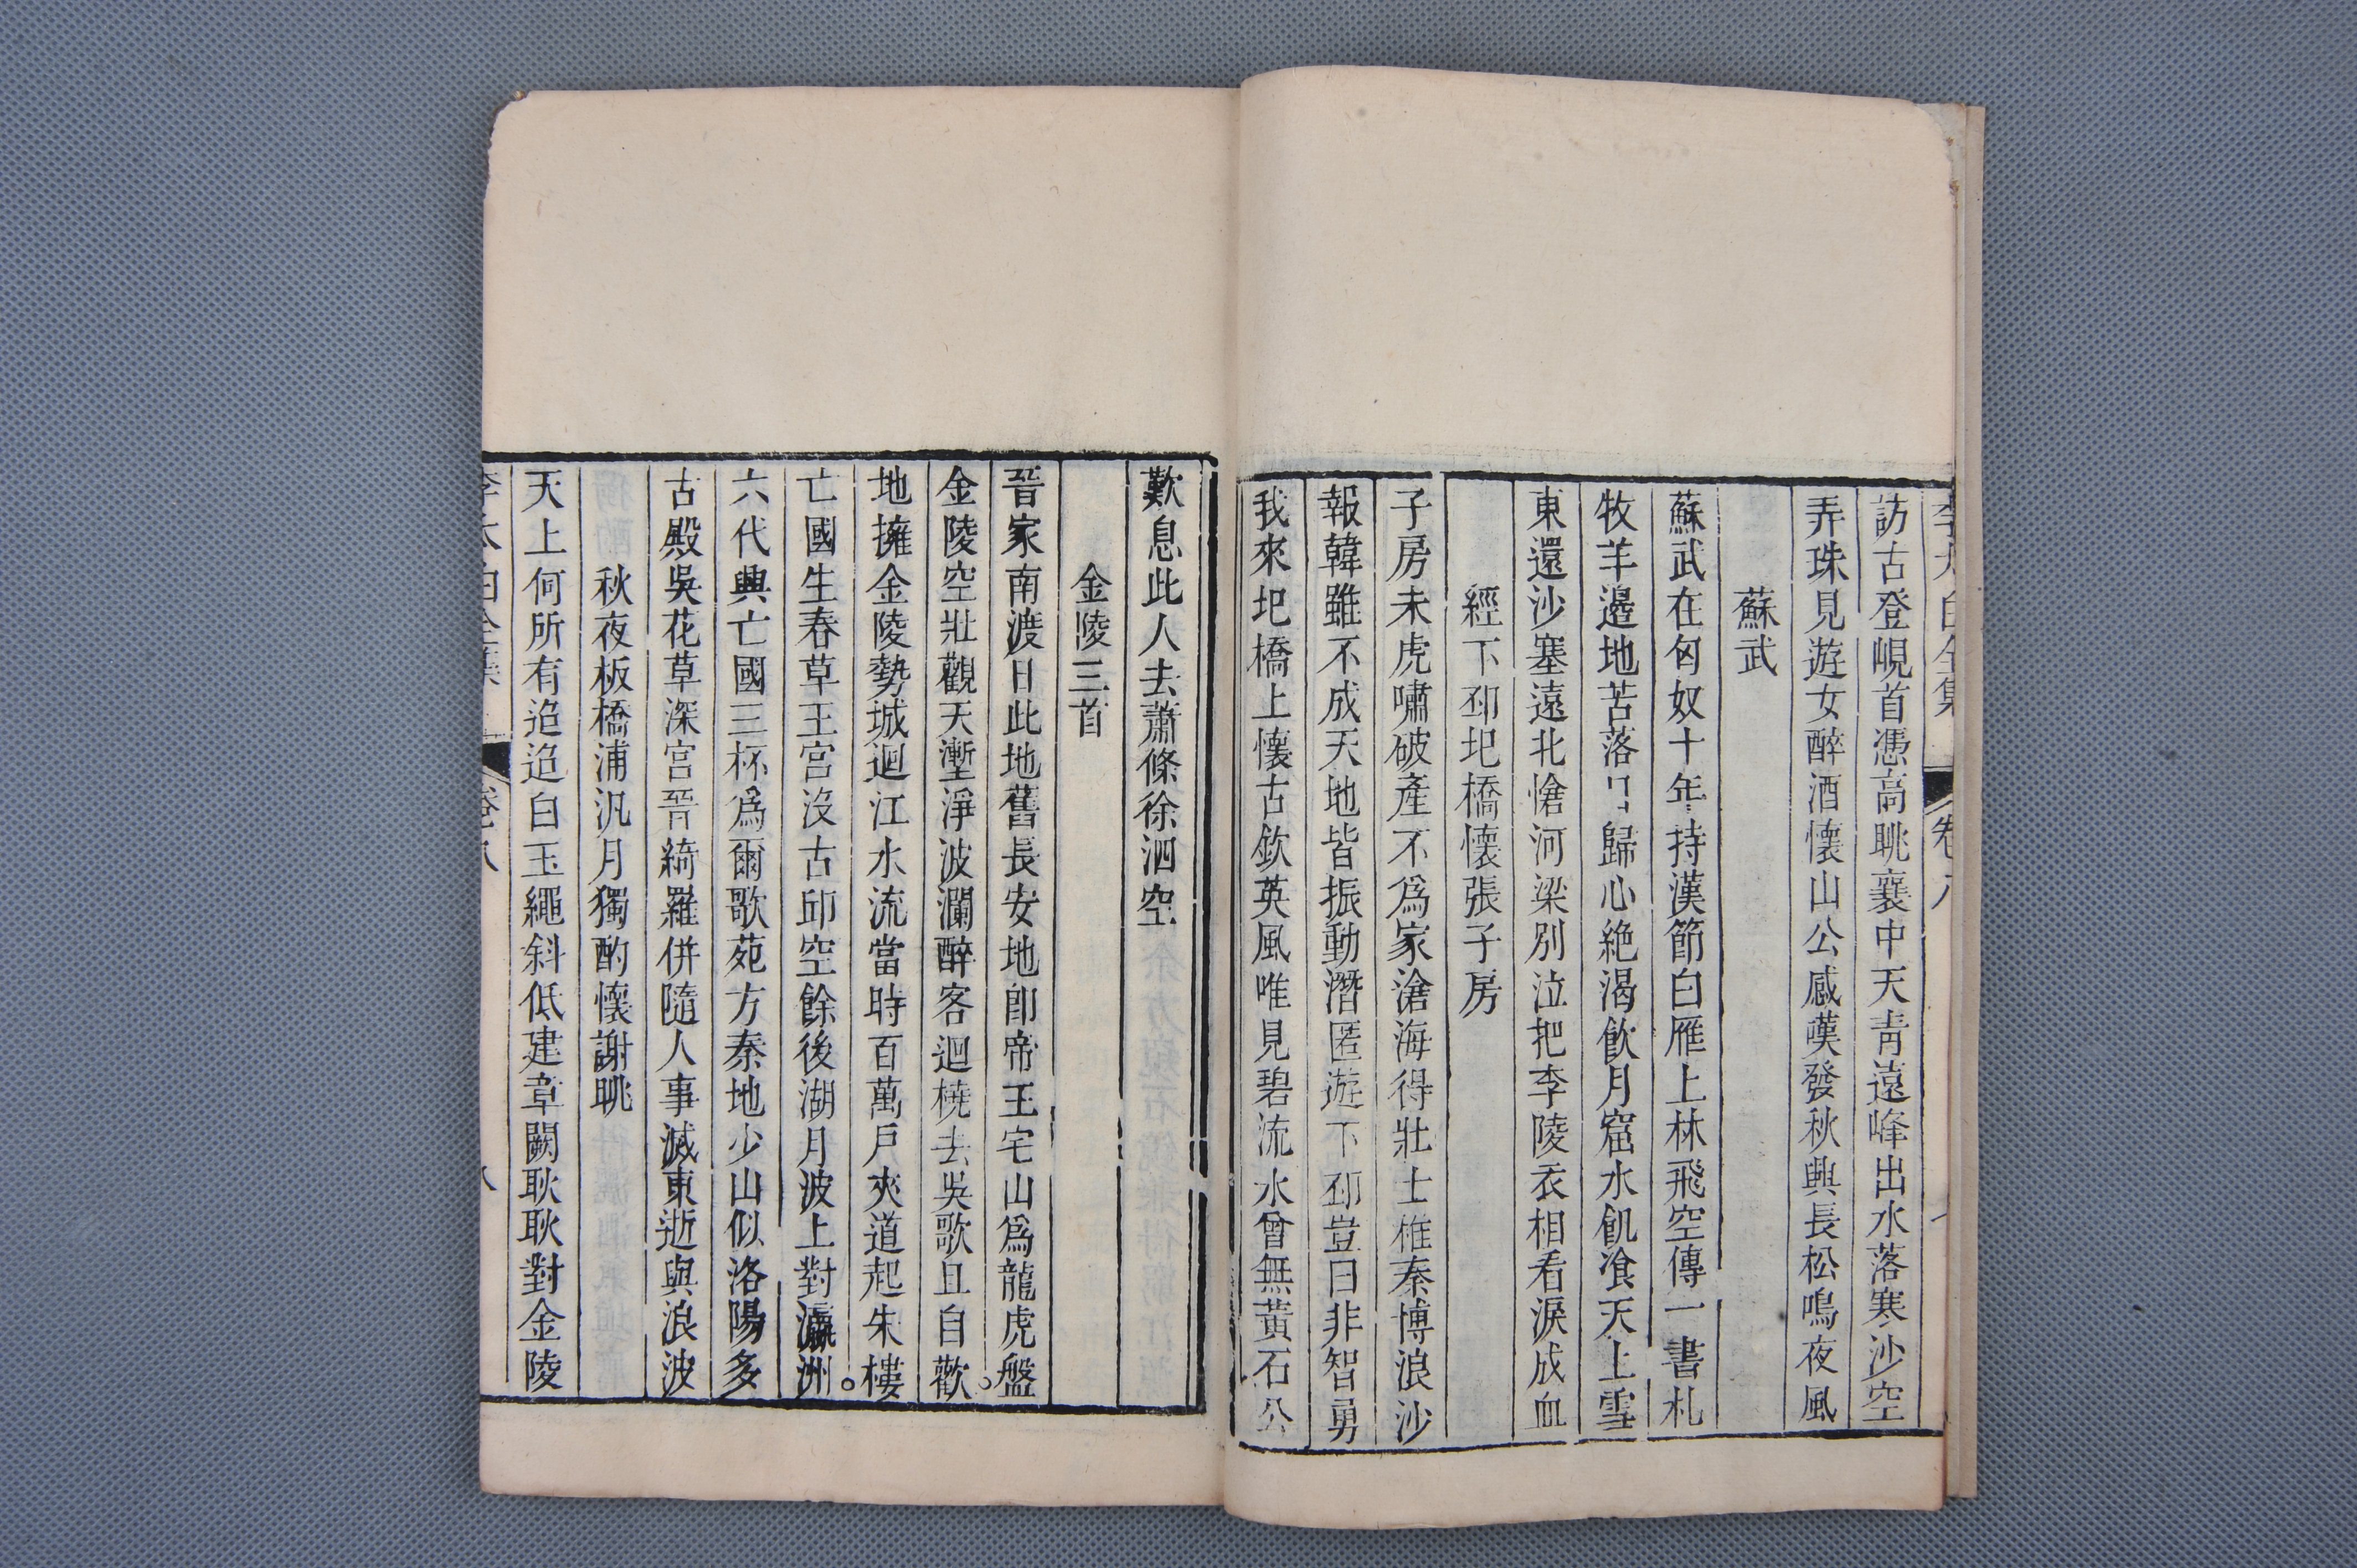 訪古登峴首憑高眺襄中天青遠峰出水落寒沙空
弄珠見遊女醉酒懷山公感嘆發秋興長松鳴夜風
蘇武
蘇武在匈奴十年持漢節白雁上林飛空傳一書札
牧羊邊地苦落日歸心絶渴飲月窟水飢飡天上雪
東還沙塞遠北愴河梁別泣把李陵衣相看淚成血
經下邳圯橋懷張子房
子房未虎嘯破產不爲家滄海得壯士椎秦博浪沙
報韓雖不成天地皆振動潛匿遊下邳豈曰非智勇
我來圯橋上懷古欽英風唯見碧流水曾無黃石公
歎息此人去蕭條徐泗空
金陵三首
晉家南渡日此地舊長安地卽帝王宅山爲龍虎盤
金陵空壯觀天塹淨波瀾醉客迴橈去吳歌且自歡。
地擁金陵勢城迴江水流當時百萬戶夾道起朱樓
亡國生春草王宮沒古邱空餘後湖月波上對瀛洲。
六代興亡國三杯爲爾歌苑方秦地少山似洛陽多
古殿吳花草深宮晉綺羅併隨人事滅東逝與浪波
秋夜板橋浦汎月獨酌懷謝眺
天上何所有迢迢白玉繩斜低建章闕耿耿對金陵
李太白全集 卷八 八